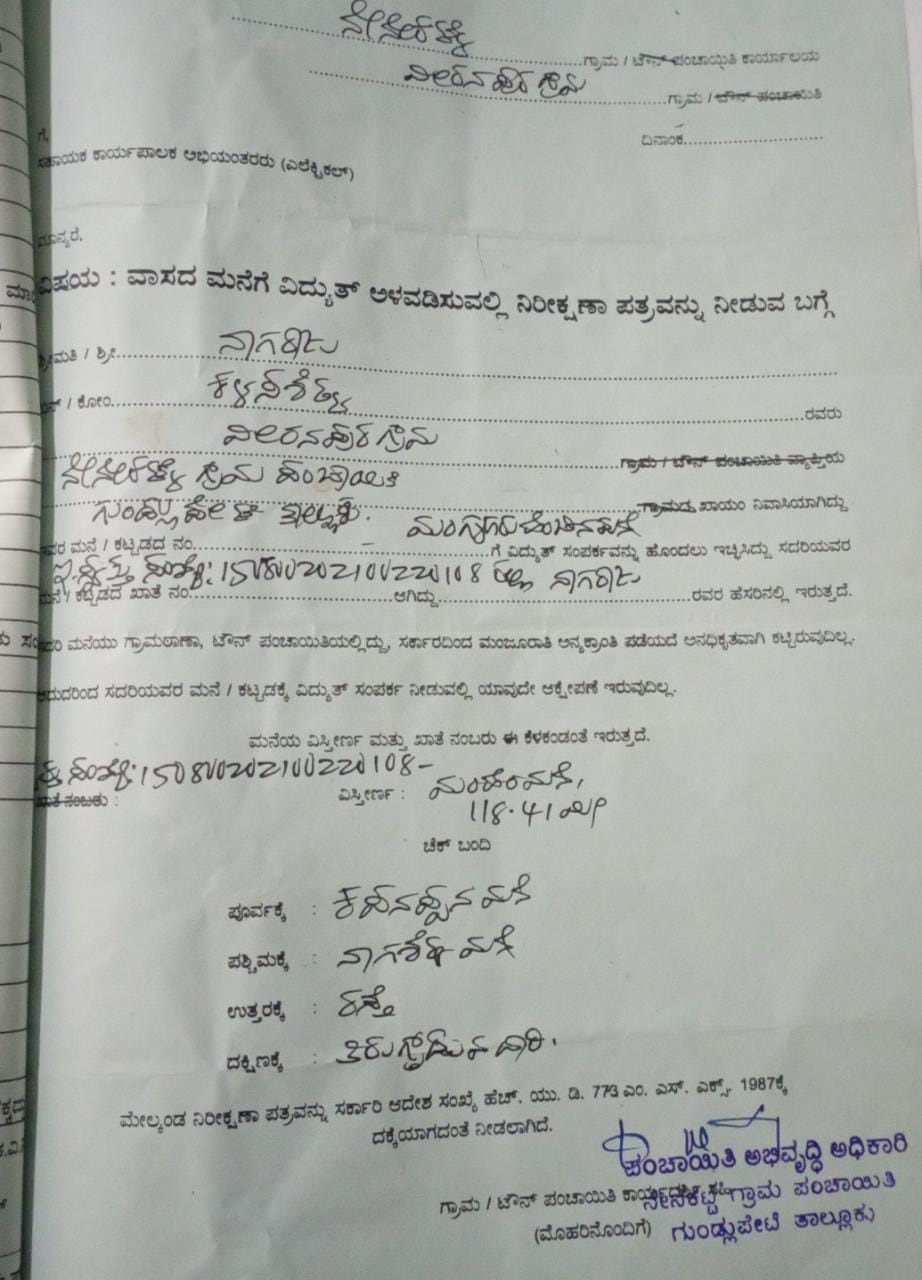 ನೇನೇಕಟ್ಟೆ
ಗ್ರಾಮ / ಟೌನ್ ಪಂಚಾಯಿತಿ ಕಾರ್ಯಾಲಯ
ವೀರನಪುರ ಗ್ರಾಮ
ಗ್ರಾಮ / ಟೌನ್ ಪಂಚಾಯಿತಿ
ದಿನಾಂಕ
ಗೆ,
ಸಹಾಯಕ ಕಾರ್ಯಪಾಲಕ ಅಭಿಯಂತರರು (ಎಲೆಕ್ಟ್ರಿಕಲ್)
ಮಾನ್ಯರೆ,
ವಿಷಯ : ವಾಸದ ಮನೆಗೆ ವಿದ್ಯುತ್ ಅಳವಡಿಸುವಲ್ಲಿ ನಿರೀಕ್ಷಣಾ ಪತ್ರವನ್ನು ನೀಡುವ ಬಗ್ಗೆ
ಶ್ರೀಮತಿ / ಶ್ರೀ ನಾಗರಾಜು
ಬಿನ್ / ಕೋಂ ರವರು
ವೀರನಪುರ ಗ್ರಾಮ
ಗ್ರಾಮ / ಟೌನ್ ಪಂಚಾಯಿತಿ ವ್ಯಾಪ್ತಿಯ
ನೇನೇಕಟ್ಟೆ ಗ್ರಾಮ ಪಂಚಾಯಿತಿ
ಗ್ರಾಮದ ಖಾಯಂ ನಿವಾಸಿಯಾಗಿದ್ದು
ಇವರ ಮನೆ / ಕಟ್ಟಡದ ನಂ. ಗೆ ವಿದ್ಯುತ್ ಸಂಪರ್ಕವನ್ನು ಹೊಂದಲು ಇಚ್ಛಿಸಿದ್ದು ಸದರಿಯವರ
ಇ-ಸ್ವತ್ತು ಸಂಖ್ಯೆ: 150800202100220108 ನಾಗರಾಜು
ಮನೆ / ಕಟ್ಟಡದ ಖಾತೆ ನಂ. ಆಗಿದ್ದು ರವರ ಹೆಸರಿನಲ್ಲಿ ಇರುತ್ತದೆ.
ಸದರಿ ಮನೆಯು ಗ್ರಾಮಠಾಣಾ, ಟೌನ್ ಪಂಚಾಯಿತಿಯಲ್ಲಿದ್ದು, ಸರ್ಕಾರದಿಂದ ಮಂಜೂರಾತಿ ಅನ್ಯಕ್ರಾಂತಿ ಪಡೆಯದೆ ಅನಧಿಕೃತವಾಗಿ ಕಟ್ಟಿರುವುದಿಲ್ಲ.
ಆದುದರಿಂದ ಸದರಿಯವರ ಮನೆ / ಕಟ್ಟಡಕ್ಕೆ ವಿದ್ಯುತ್ ಸಂಪರ್ಕ ನೀಡುವಲ್ಲಿ ಯಾವುದೇ ಆಕ್ಷೇಪಣೆ ಇರುವುದಿಲ್ಲ.
ಮನೆಯ ವಿಸ್ತೀರ್ಣ ಮತ್ತು ಖಾತೆ ನಂಬರು ಈ ಕೆಳಕಂಡಂತೆ ಇರುತ್ತದೆ.
ಸಂಖ್ಯೆ: 150800202100220108
ಖಾತೆ ನಂಬರು : ವಿಸ್ತೀರ್ಣ :
118.41
ಚೆಕ್ ಬಂದಿ
ಪೂರ್ವಕ್ಕೆ : ಮನೆ
ಪಶ್ಚಿಮಕ್ಕೆ : ನಾಗಶೆಟ್ಟಿ ಮನೆ
ಉತ್ತರಕ್ಕೆ : ರಸ್ತೆ
ದಕ್ಷಿಣಕ್ಕೆ : ತಿರುಗಾಡುವ ದಾರಿ.
ಮೇಲ್ಕಂಡ ನಿರೀಕ್ಷಣಾ ಪತ್ರವನ್ನು ಸರ್ಕಾರಿ ಆದೇಶ ಸಂಖ್ಯೆ ಹೆಚ್. ಯು. ಡಿ. 773 ಎಂ. ಎಸ್. ಎಕ್ಸ್. 1987ಕ್ಕೆ
ದಕ್ಕೆಯಾಗದಂತೆ ನೀಡಲಾಗಿದೆ.
ಪಂಚಾಯಿತಿ ಅಭಿವೃದ್ಧಿ ಅಧಿಕಾರಿ
ಗ್ರಾಮ / ಟೌನ್ ಪಂಚಾಯಿತಿ ಕಾರ್ಯದರ್ಶಿ ಸಹಿ
ನೇನೇಕಟ್ಟೆ ಗ್ರಾಮ ಪಂಚಾಯಿತಿ
(ಮೊಹರಿನೊಂದಿಗೆ)
ಗುಂಡ್ಲುಪೇಟೆ ತಾಲ್ಲೂಕು